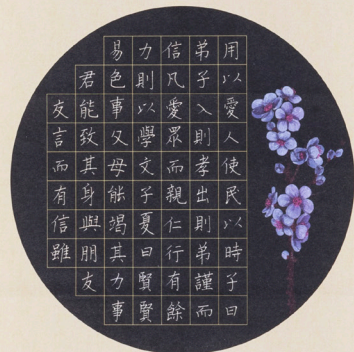 用以愛人使民以時子曰
弟子入則孝出則弟謹而
信凡愛眾而親仁行有餘
力則以學文子夏曰賢賢
易色事父母能竭其力事
君能致其身與朋友
友言而有信雖